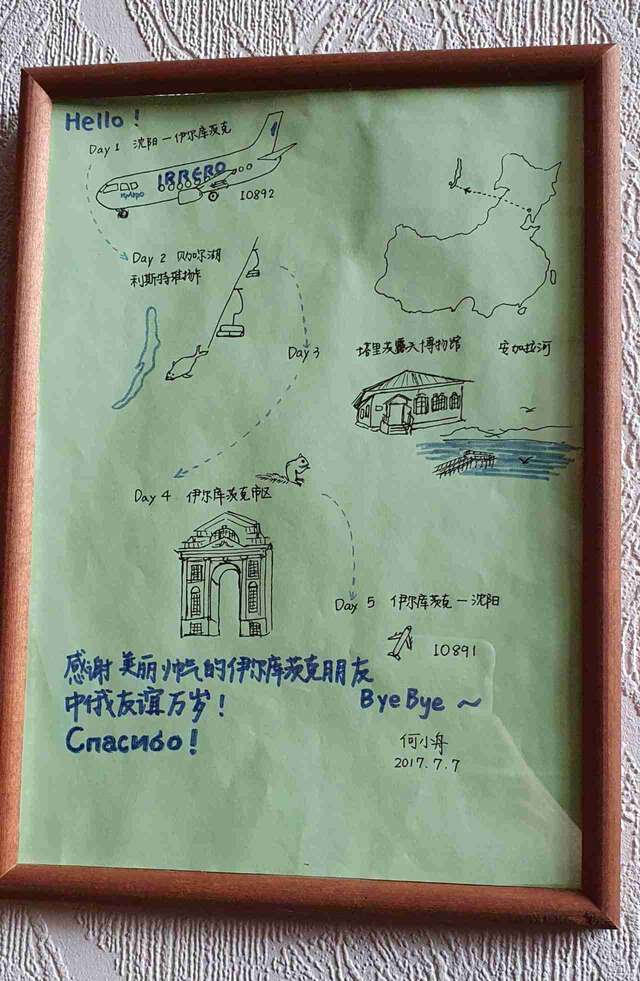 Hello!
Day 1 沈阳一伊尔库茨克
IRAERO
ИрАэро
IO892
Day 2 贝加尔湖
利斯特维扬卡
Day 3
塔里茨露天博物馆 安加拉河
Day 4 伊尔库茨克市区
Day 5 伊尔库茨克一沈阳
IO891
感谢美丽帅气的伊尔库茨克朋友
中俄友谊万岁!
Bye Bye ~
Спасибо!
何小舟
2017.7.7